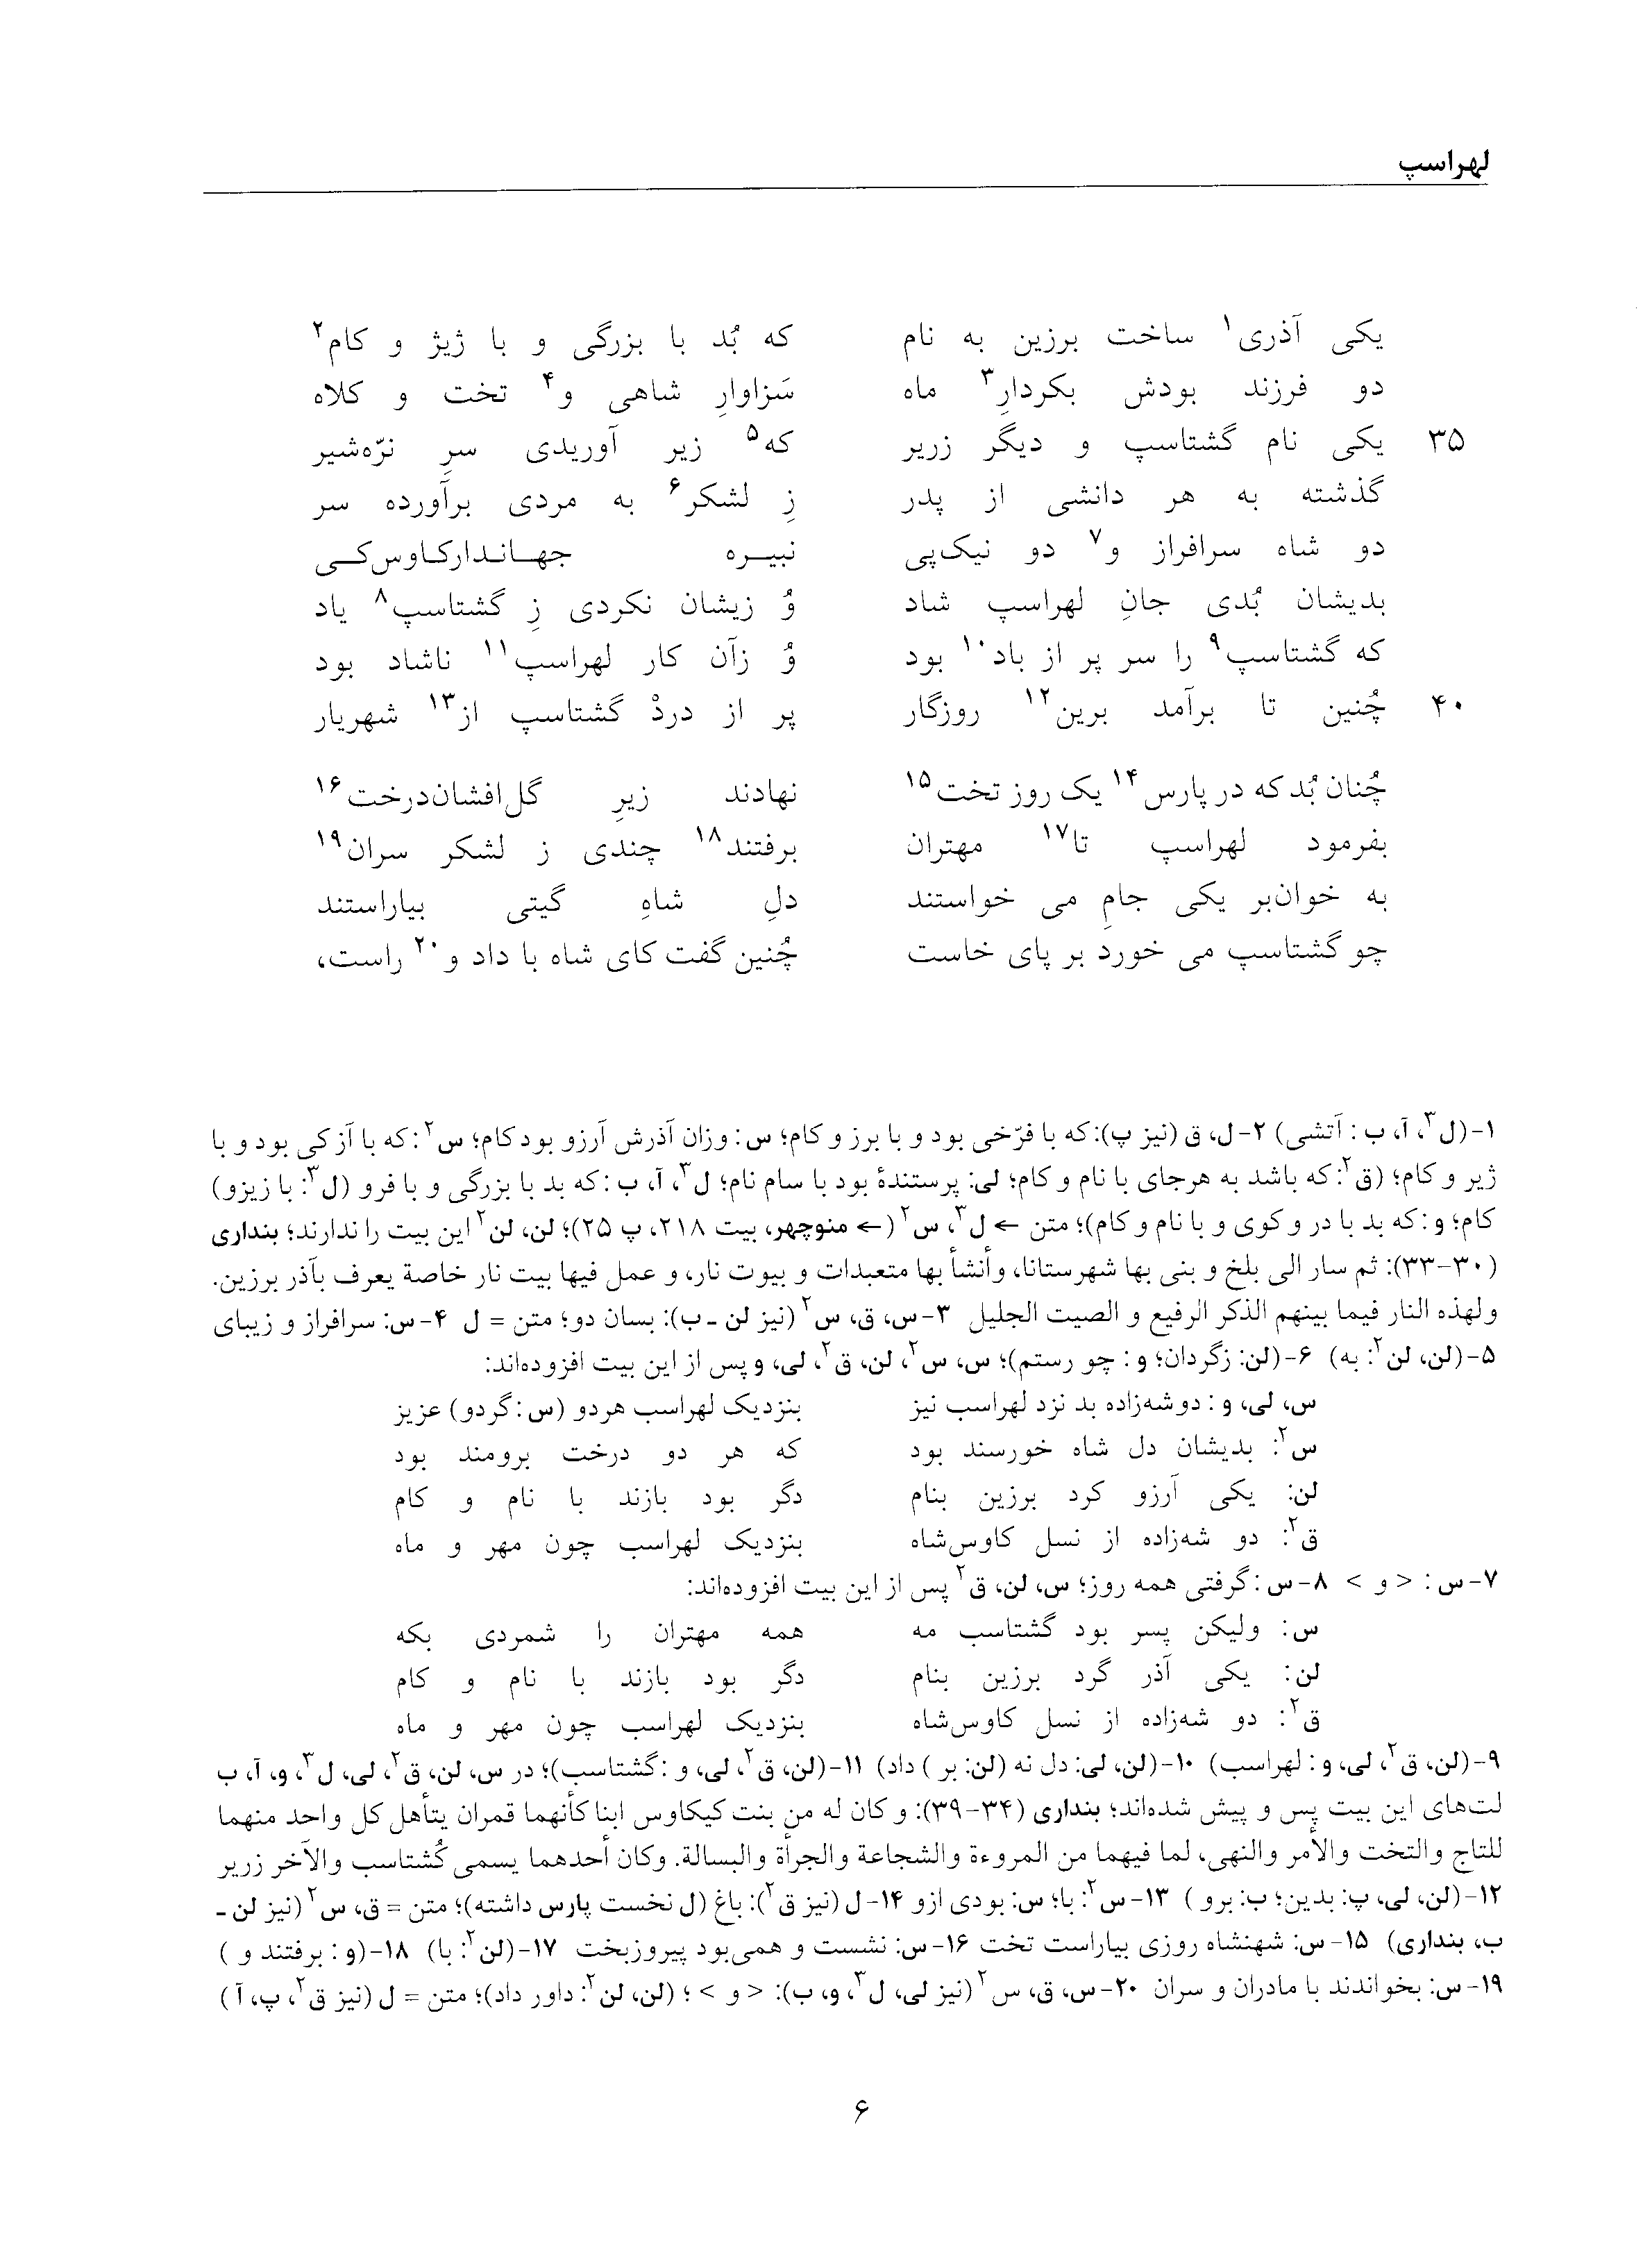 لهراسپ
یکی آذری۱ ساخت برزین به نام که بُد با بزرگی و با ژیژ و کام۲
دو فرزند بودش بکردارِ۳ ماه سَزاوارِ شاهی و۴ تخت و کلاه
۳۵ یکی نام گشتاسپ و دیگر زریر که۵ زیر آوریدی سرِ نرّه‌شیر
گذشته به هر دانشی از پدر زِ لشکر۶ به مردی برآورده سر
دو شاه سرافراز و۷ دو نیک‌پی نبیره جهاندارکاوس‌کی
بدیشان بُدی جانِ لهراسپ شاد وُ زیشان نکردی زِ گشتاسپ۸ یاد
که گشتاسپ۹ را سر پر از باد۱۰ بود وُ زآن کار لهراسپ۱۱ ناشاد بود
۴۰ چُنین تا برآمد برین۱۲ روزگار پر از دردْ گشتاسپ از۱۳ شهریار
چُنان بُد که در پارس۱۴ یک روز تخت۱۵ نهادند زیرِ گل‌افشان‌درخت۱۶
بفرمود لهراسپ تا۱۷ مهتران برفتند۱۸ چندی ز لشکر سران۱۹
به خوان‌بر یکی جامِ می خواستند دلِ شاهِ گیتی بیاراستند
چو گشتاسپ می خورد بر پای خاست چُنین گفت کای شاه با داد و۲۰ راست،
۱-(ل۳، آ، ب: آتشی) ۲-ل، ق (نیز پ): که با فرّخی بود و با برز و کام؛ س: وزان آذرش آرزو بود کام؛ س۲: که با آز کی بود و با
ژیر و کام؛ (ق۲: که باشد به هرجای با نام و کام؛ لی: پرستندهٔ بود با سام نام؛ ل۳، آ، ب: که بد با بزرگی و با فرو (ل۳: با زیزو)
کام؛ و: که بد با در و کوی و با نام و کام)؛ متن ← ل۳، س۲ (← منوچهر، بیت ۲۱۸، پ ۲۵)؛ لن، لن۲ این بیت را ندارند؛ بنداری
(۳۰-۳۳): ثم سار الی بلخ و بنی بها شهرستانا، وأنشأ بها متعبدات و بیوت نار، و عمل فیها بیت نار خاصة یعرف بآذر برزین.
ولهذه النار فیما بینهم الذکر الرفیع و الصیت الجلیل ۳-س، ق، س۲ (نیز لن ـ ب): بسان دو؛ متن = ل ۴-س: سرافراز و زیبای
۵-(لن، لن۲: به) ۶-(لن: زگردان؛ و: چو رستم)؛ س، س۲، لن، ق۲، لی، و پس از این بیت افزوده‌اند:
س، لی، و: دو شه‌زاده بد نزد لهراسب نیز بنزدیک لهراسب هردو (س: گردو) عزیز
س۲: بدیشان دل شاه خورسند بود که هر دو درخت برومند بود
لن: یکی آرزو کرد برزین بنام دگر بود بازند با نام و کام
ق۲: دو شه‌زاده از نسل کاوس‌شاه بنزدیک لهراسب چون مهر و ماه
۷-س: < و > ۸-س: گرفتی همه روز؛ س، لن، ق۲ پس از این بیت افزوده‌اند:
س: ولیکن پسر بود گشتاسب مه همه مهتران را شمردی بکه
لن: یکی آذر گرد برزین بنام دگر بود بازند با نام و کام
ق۲: دو شه‌زاده از نسل کاوس‌شاه بنزدیک لهراسب چون مهر و ماه
۹-(لن، ق۲، لی، و: لهراسب) ۱۰-(لن، لی: دل نه (لن: بر) داد) ۱۱-(لن، ق۲، لی، و: گشتاسب)؛ در س، لن، ق۲، لی، ل۳، و، آ، ب
لت‌های این بیت پس و پیش شده‌اند؛ بنداری (۳۴-۳۹): و کان له من بنت کیکاوس ابنا کأنهما قمران یتأهل کل واحد منهما
للتاج والتخت والأمر والنهی، لما فیهما من المروءة والشجاعة والجرأة والبسالة. وکان أحدهما یسمی کُشتاسب والآخر زریر
۱۲-(لن، لی، پ: بدین؛ ب: برو) ۱۳-س۲: با؛ س: بودی ازو ۱۴-ل (نیز ق۲): باغ (ل نخست پارس داشته)؛ متن = ق، س۲ (نیز لن ـ
ب، بنداری) ۱۵-س: شهنشاه روزی بیاراست تخت ۱۶-س: نشست و همی‌بود پیروزبخت ۱۷-(لن۲: با) ۱۸-(و: برفتند و)
۱۹-س: بخواندند با مادران و سران ۲۰-س، ق، س۲ (نیز لی، ل۳، و، ب): < و >؛ (لن، لن۲: داور داد)؛ متن = ل (نیز ق۲، پ، آ)
۶